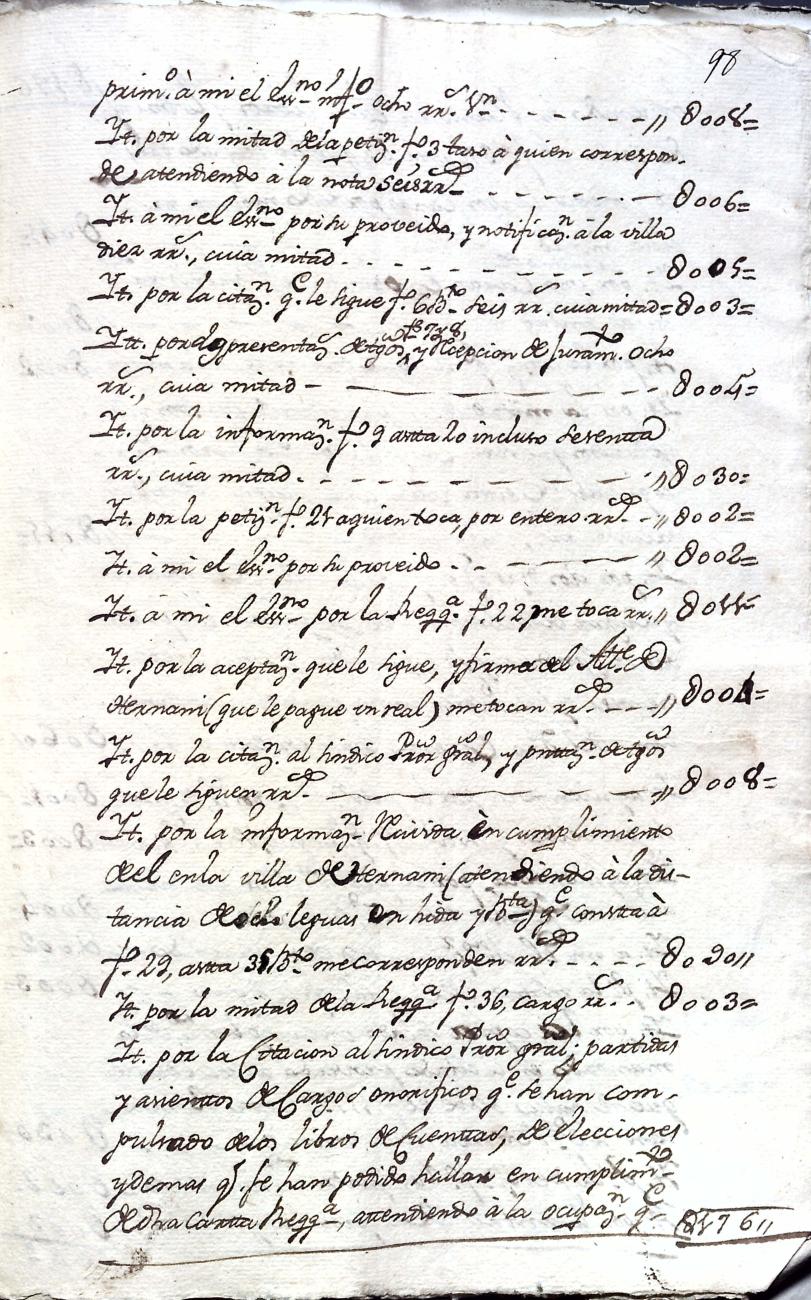 98
prim.º à mi el Essno ocho rr.s Vn. - - - - - - - - // 8008=
It. por la mitad dela petizn. f.º 3 taso à quien correspon-
de atendiendo à la nota seis rr.s - - - - - - - 8006=
It. à mi el Essno por su proveido, y notificazn. à la villa
diez rr.s, cuia mitad - - - - - - - - - - 8005=
It. por la citazn. q.e le sigue f.º 6 bto seis rr. cuia mitad = 8003=
Itt. por presentazn. de tgos f.s 7 y 8, y Recepcion de Juram.to ocho
rr.s, cuia mitad - - - - - - - 8004=
It. por la informazn. f.º 9 asta 20 incluso sesenta
rr.s, cuia mitad - - - - - - - - - // 8030=
It. por la petizn. f.º 21 aquien toca, por entero rr.s - // 8002=
It. à mi el Essno por su proveido - - - // 8002=
It. à mi el Essno por la Reqq.a f.º 22 me toca rr.s // 8011=
It. por la aceptazn. que le sigue, y firma del Alte. de
Hernani (que le pague un real) me tocan rr.s - - - // 8004=
It. por la citazn. al sindico Pror gral, y pnttazn. de tgos
que le siguen rr.s - - - - - // 8008=
It. por la informazn. Rcivida en cumplimiento
del en la villa de Hernani (atendiendo à la dis-
tancia de leguas en hida y bta) q.e constta à
f.º 29, asta 35 bto me corresponden rr.s - - - - 8090//
It. por la mitad dela Reqq.a f.º 36, cargo rr.s - - 8003=
It. por la Citacion al sindico Pror gral; partidas
y asientos de Cargos onorificos q.e se han com-
pulsado delos libros de Cuentas, de elecciones
y demas q.e se han podido hallar en cumplim.to
de dha Cartta Reqq.a, attendiendo à la ocupazn. q.e 8176//